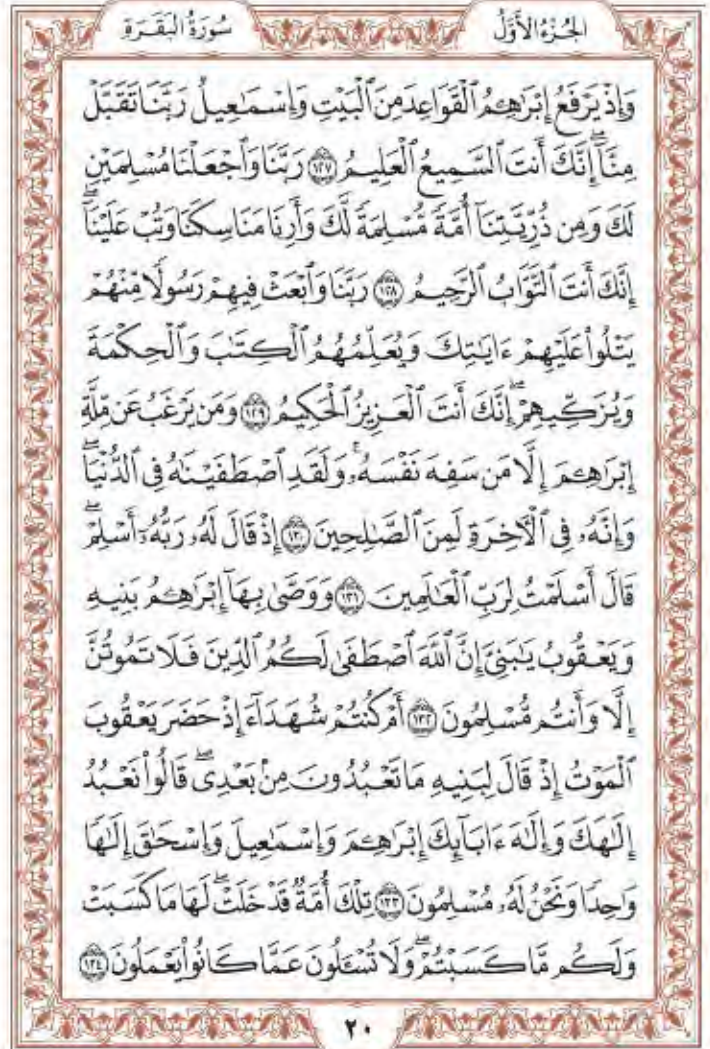 الجُزْءُ الأَوَّلُ
سُورَةُ البَقَرَةِ
وَإِذْ يَرْفَعُ إِبْرَٰهِـۧمُ ٱلْقَوَاعِدَ مِنَ ٱلْبَيْتِ وَإِسْمَٰعِيلُ رَبَّنَا تَقَبَّلْ
مِنَّآ ۖ إِنَّكَ أَنتَ ٱلسَّمِيعُ ٱلْعَلِيمُ ١٢٧ رَبَّنَا وَٱجْعَلْنَا مُسْلِمَيْنِ
لَكَ وَمِن ذُرِّيَّتِنَآ أُمَّةً مُّسْلِمَةً لَّكَ وَأَرِنَا مَنَاسِكَنَا وَتُبْ عَلَيْنَآ ۖ
إِنَّكَ أَنتَ ٱلتَّوَّابُ ٱلرَّحِيمُ ١٢٨ رَبَّنَا وَٱبْعَثْ فِيهِمْ رَسُولًا مِّنْهُمْ
يَتْلُوا۟ عَلَيْهِمْ ءَايَٰتِكَ وَيُعَلِّمُهُمُ ٱلْكِتَٰبَ وَٱلْحِكْمَةَ
وَيُزَكِّيهِمْ ۚ إِنَّكَ أَنتَ ٱلْعَزِيزُ ٱلْحَكِيمُ ١٢٩ وَمَن يَرْغَبُ عَن مِّلَّةِ
إِبْرَٰهِـۧمَ إِلَّا مَن سَفِهَ نَفْسَهُۥ ۚ وَلَقَدِ ٱصْطَفَيْنَٰهُ فِى ٱلدُّنْيَا ۖ
وَإِنَّهُۥ فِى ٱلْـَٔاخِرَةِ لَمِنَ ٱلصَّٰلِحِينَ ١٣٠ إِذْ قَالَ لَهُۥ رَبُّهُۥٓ أَسْلِمْ ۖ
قَالَ أَسْلَمْتُ لِرَبِّ ٱلْعَٰلَمِينَ ١٣١ وَوَصَّىٰ بِهَآ إِبْرَٰهِـۧمُ بَنِيهِ
وَيَعْقُوبُ يَٰبَنِىَّ إِنَّ ٱللَّهَ ٱصْطَفَىٰ لَكُمُ ٱلدِّينَ فَلَا تَمُوتُنَّ
إِلَّا وَأَنتُم مُّسْلِمُونَ ١٣٢ أَمْ كُنتُمْ شُهَدَآءَ إِذْ حَضَرَ يَعْقُوبَ
ٱلْمَوْتُ إِذْ قَالَ لِبَنِيهِ مَا تَعْبُدُونَ مِنۢ بَعْدِى ۖ قَالُوا۟ نَعْبُدُ
إِلَٰهَكَ وَإِلَٰهَ ءَابَآئِكَ إِبْرَٰهِـۧمَ وَإِسْمَٰعِيلَ وَإِسْحَٰقَ إِلَٰهًا
وَٰحِدًا وَنَحْنُ لَهُۥ مُسْلِمُونَ ١٣٣ تِلْكَ أُمَّةٌ قَدْ خَلَتْ ۖ لَهَا مَا كَسَبَتْ
وَلَكُم مَّا كَسَبْتُمْ ۖ وَلَا تُسْـَٔلُونَ عَمَّا كَانُوا۟ يَعْمَلُونَ ١٣٤
٢٠